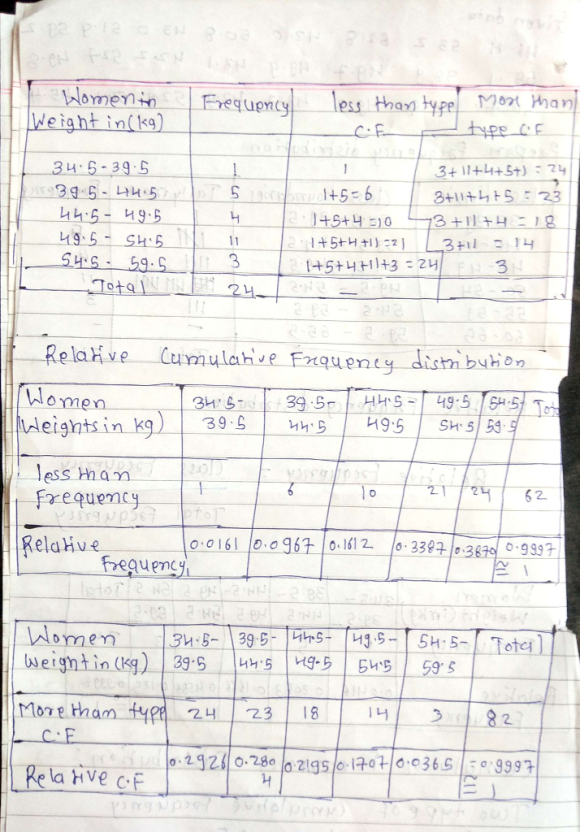 Women in Frequency less than type More than
Weight in (kg) C.F type C.F
34.5-39.5 1 1 3+11+4+5+1 = 24
39.5-44.5 5 1+5=6 3+11+4+5 = 23
44.5-49.5 4 1+5+4=10 3+11+4 = 18
49.5-54.5 11 1+5+4+11=21 3+11 = 14
54.5-59.5 3 1+5+4+11+3=24 3
Total 24 —
Relative Cumulative Frequency distribution
Women 34.5- 39.5- 44.5- 49.5 54.5- Tota
Weights in kg) 39.5 44.5 49.5 54.5 59.5
less than
Frequency 1 6 10 21 24 62
Relative 0.0161 0.0967 0.1612 0.3387 0.3870 0.9997
Frequency ≅ 1
Women 34.5- 39.5- 44.5- 49.5- 54.5- Total
Weight in (kg) 39.5 44.5 49.5 54.5 59.5
More than type 24 23 18 14 3 82
C.F
Relative C.F 0.2926 0.2804 0.2195 0.1707 0.0365 =0.9997
≅ 1